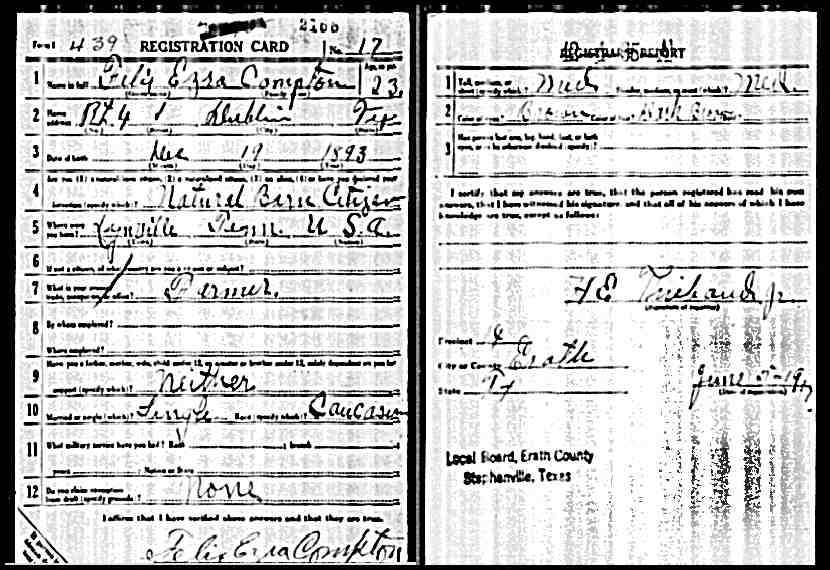 2166
Form 1 439 REGISTRATION CARD No. 17
1 Name in full Felix Ezra Compton Age, in yrs. 23
2 Home address Rt 4 Dublin Tex
(No.) (Street) (City) (State)
3 Date of birth Dec 19 1893
(Month) (Day) (Year)
4 Are you (1) a natural-born citizen, (2) a naturalized citizen, (3) an alien, (4) or have you declared your
intention (specify which)? Natural Born Citizen
5 Where were you born? Lynville Tenn. U S. a.
(Town) (State) (Nation)
6 If not a citizen, of what country are you a citizen or subject?
7 What is your present trade, occupation, or office? Farmer.
8 By whom employed?
Where employed?
9 Have you a father, mother, wife, child under 12, or a sister or brother under 12, solely dependent on you for
support (specify which)? Neither
10 Married or single (which)? Single Race (specify which)? Caucasian
11 What military service have you had? Rank ; branch
years ; Nation or State
12 Do you claim exemption from draft (specify grounds)? None
I affirm that I have verified above answers and that they are true.
Felix Ezra Compton
REGISTRAR'S REPORT
1 Tall, medium, or short (specify which)? Med Slender, medium, or stout (which)? Med.
2 Color of eyes? Brown Color of hair? Dark Brown
3 Has person lost arm, leg, hand, foot, or both
eyes, or is he otherwise disabled (specify)?
I certify that my answers are true, that the person registered has read his own
answers, that I have witnessed his signature, and that all of his answers of which I have
knowledge are true, except as follows:
(Signature of registrar)
Precinct 4
City or County Erath
State Tx
June 5 - 1917
(Date of registration)
Local Board, Erath County
Stephenville, Texas